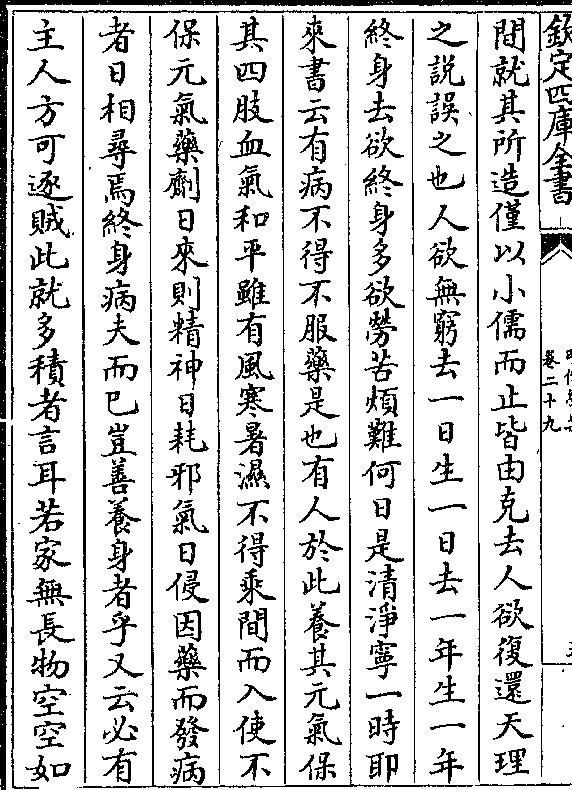 欽定四庫全書
卷二十九
間就其所造僅以小儒而止皆由克去人欲復還天理
之説誤之也人欲無窮去一日生一日去一年生一年
終身去欲終身多欲勞苦煩難何日是清淨寧一時耶
來書云有病不得不服藥是也有人於此養其元氣保
其四肢血氣和平雖有風寒暑濕不得乘間而入使不
保元氣藥劑日來則精神日耗邪氣日侵因藥而發病
者日相尋焉終身病夫而已豈善養身者乎又云必有
主人方可逐賊此就多積者言耳若家無長物空空如